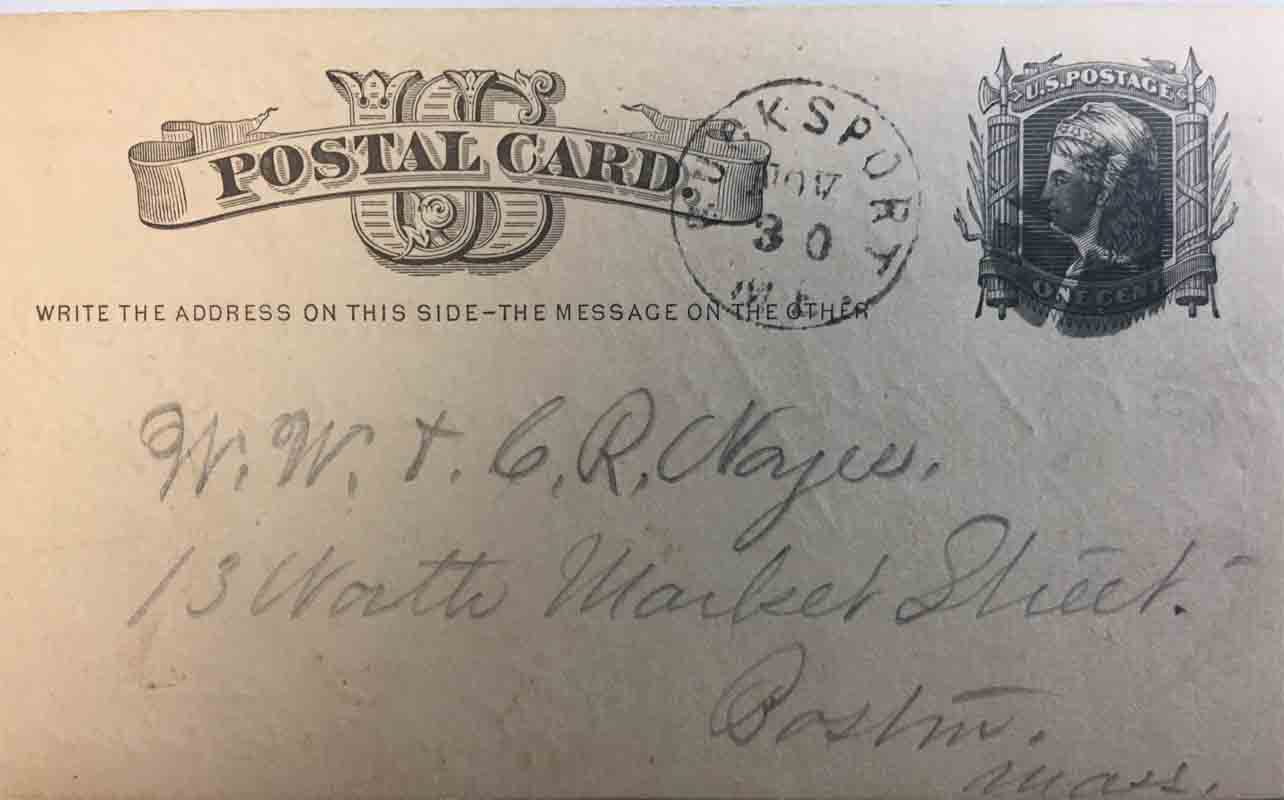 US
POSTAL CARD.
BUCKSPORT
NOV
30
ME.
U.S. POSTAGE
ONE CENT
WRITE THE ADDRESS ON THIS SIDE–THE MESSAGE ON THE OTHER
W. W. & C. R. Noyes.
13 North Market Street.
Boston.
Mass.